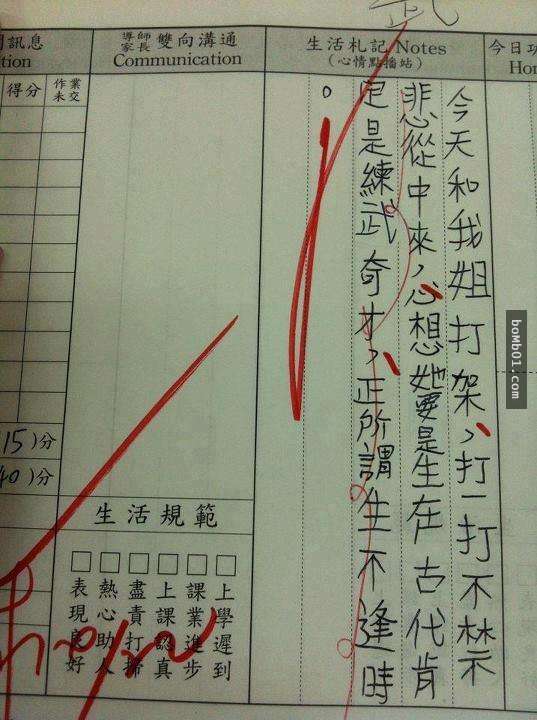 訊息
tion
得分
作業未交
15)分
40)分
導師
家長
雙向溝通
Communication
生活札記 Notes
(心情點播站)
今日
Hor
武
今天和我姐打架，打一打不禁
悲從中來，心想她要是生在古代肯
定是練武奇才，正所謂生不逢時
。
生活規範
上學遲到
課業進步
上課認真
盡責打掃
熱心助人
表現良好
boMb01.com